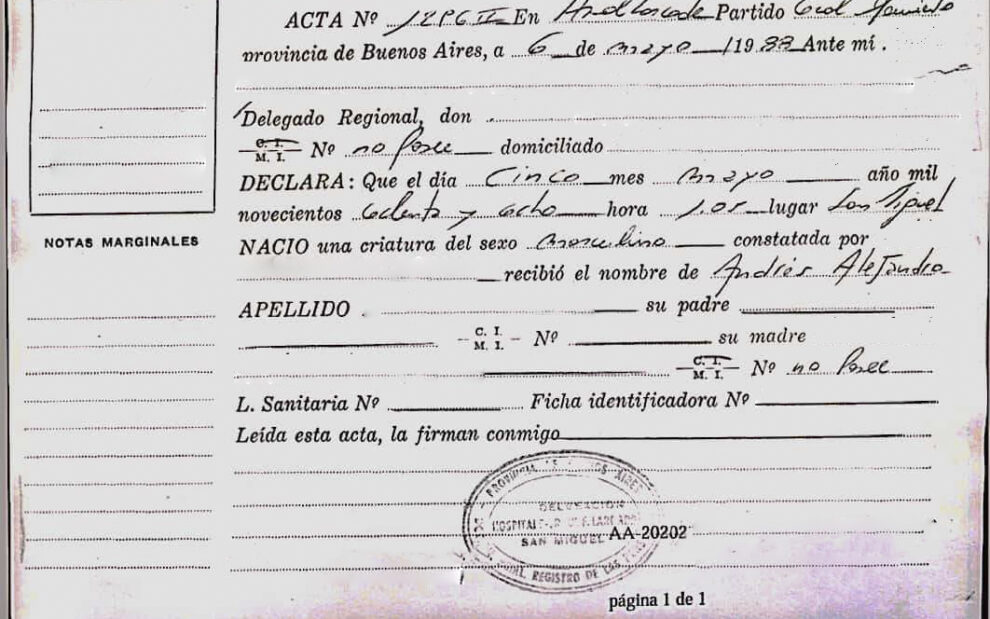 ACTA Nº En Partido Gral
provincia de Buenos Aires, a 6 de mayo /1988 Ante mí.
Delegado Regional, don
C. I.
M. I. Nº no Posee domiciliado
DECLARA: Que el día Cinco mes mayo año mil
novecientos ochenta y ocho hora 1.05 lugar San Miguel
NOTAS MARGINALES
NACIO una criatura del sexo masculino constatada por
recibió el nombre de Andrés Alejandro
APELLIDO su padre
C. I.
M. I. - Nº su madre
C. I.
M. I. Nº no Posee
L. Sanitaria Nº Ficha identificadora Nº
Leída esta acta, la firman conmigo
DELEGACION
SAN MIGUEL AA-20202
REGISTRO DE LAS
página 1 de 1